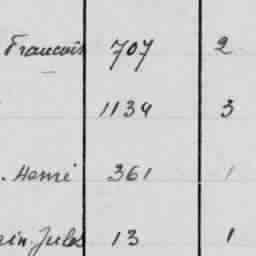 Francois 707 2
1134 3
. Henri 361 1
Jules 13 1